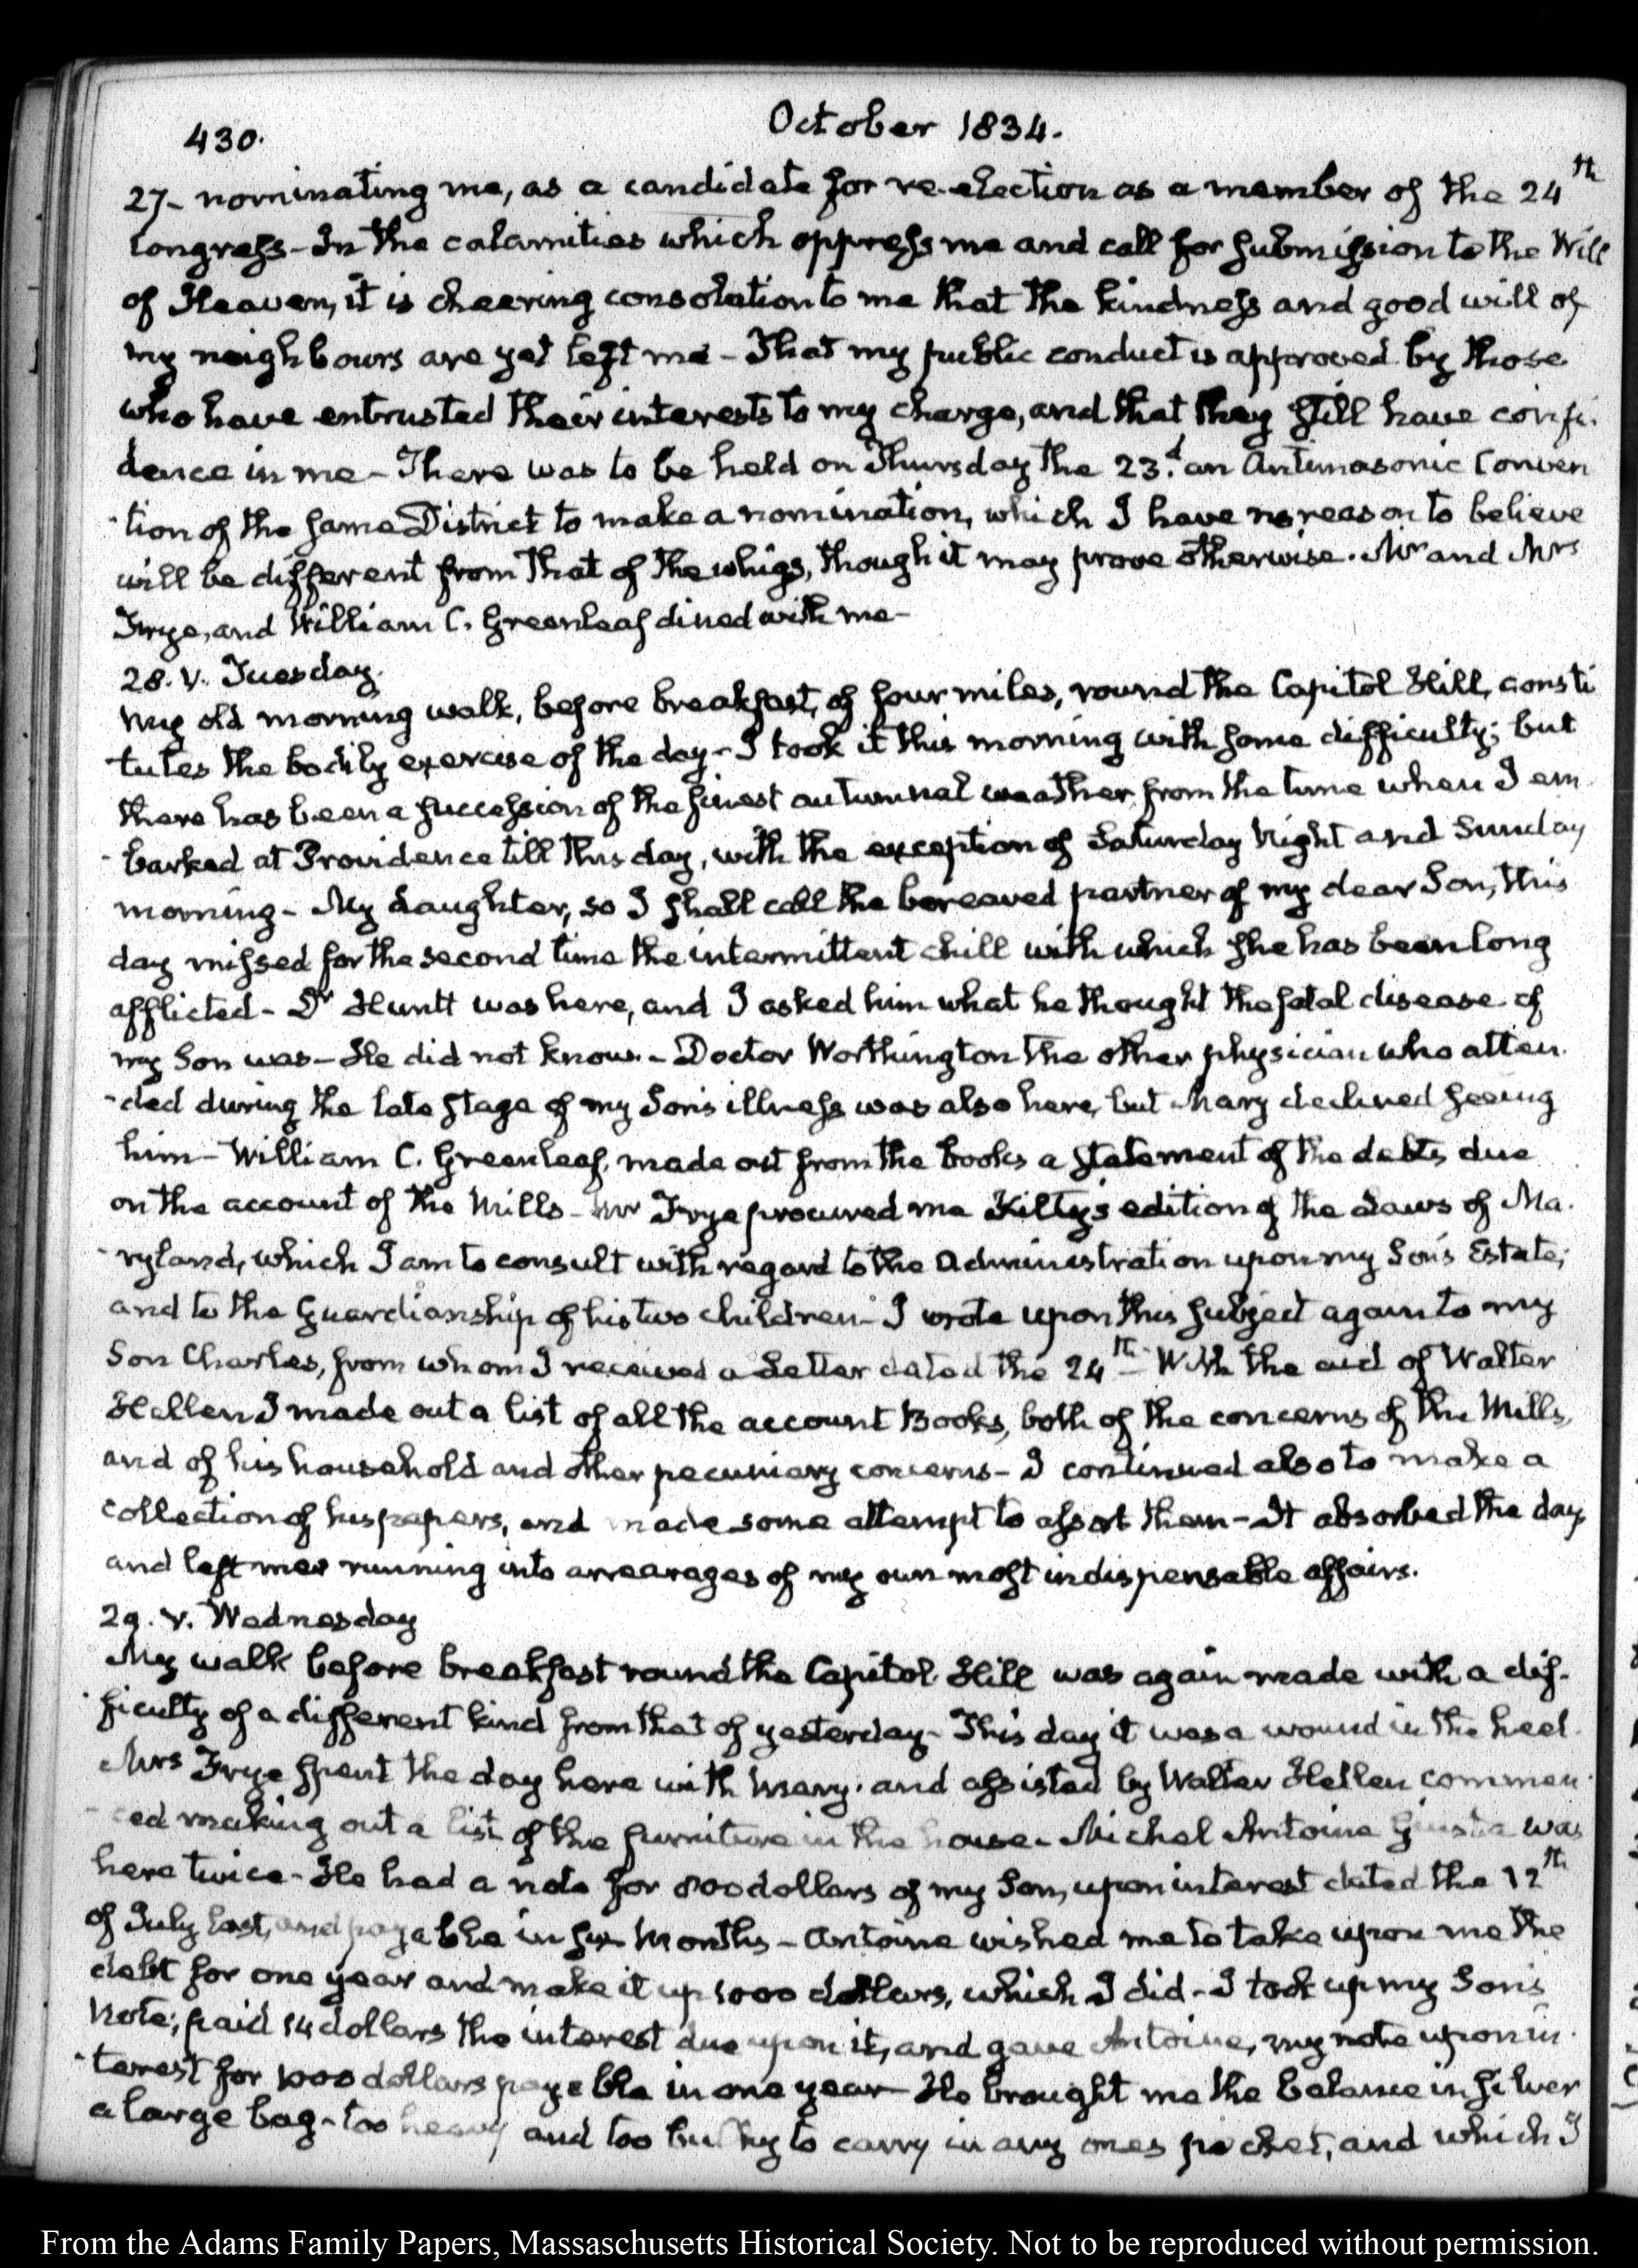 430.
October 1834.
27- nominating me, as a candidate for re-election as a member of the 24th
Congress - In the calamities which oppress me and call for submission to the Will
of Heaven, it is cheering consolation to me that the kindness and good will of
my neighbours are yet left me - That my public conduct is approved by those
who have entrusted their interests to my charge, and that they still have confi-
dence in me - There was to be held on Thursday the 23.d an Antimasonic Conven
-tion of the same District to make a nomination, which I have no reason to believe
will be different from that of the whigs, though it may prove otherwise. Mr and Mrs
Frye, and William C. Greenleaf dined with me -
28. V. Tuesday.
My old morning walk, before breakfast, of four miles, round the Capitol Hill, consti
tutes the bodily exercise of the day - I took it this morning with some difficulty; but
there has been a succession of the finest autumnal weather from the time when I em
-barked at Providence till this day, with the exception of Saturday Night and Sunday
morning - My daughter, so I shall call the bereaved partner of my dear Son, this
day missed for the second time the intermittent chill with which she has been long
afflicted - Dr Huntt was here, and I asked him what he thought the fatal disease of
my Son was - He did not know. - Doctor Worthington the other physician who atten-
-ded during the late stage of my Son's illness was also here, but Mary declined seeing
him - William C. Greenleaf, made out from the books a statement of the debts due
on the account of the Mills - Mr Frye procured me Kilty's edition of the Laws of Ma-
-ryland, which I am to consult with regard to the Administration upon my Son's Estate;
and to the Guardianship of his two children - I wrote upon this subject again to my
Son Charles, from whom I received a Letter dated the 24th - With the aid of Walter
Hellen I made out a list of all the account Books, both of the concerns of the Mills,
and of his household and other pecuniary concerns - I continued also to make a
collection of his papers, and made some attempt to assort them - It absorbed the day
and left me running into arrearages of my own most indispensable affairs.
29. V. Wednesday
My walk before breakfast round the Capitol Hill was again made with a dif-
-ficulty of a different kind from that of yesterday - This day it was a wound in the heel.
Mrs Frye spent the day here with Mary. and assisted by Walter Hellen commen-
-ced making out a list of the furniture in the house - Michel Antoine Giusta was
here twice - He had a note for 800 dollars of my Son, upon interest dated the 12th
of July last, and payable in six Months - Antoine wished me to take upon me the
debt for one year and make it up 1000 dollars, which I did - I took up my Son's
Note; paid 14 dollars the interest due upon it, and gave Antoine, my note upon in-
-terest for 1000 dollars payable in one year - He brought me the balance in silver
a large bag - too heavy and too bulky to carry in any ones pocket, and which I
From the Adams Family Papers, Massaschusetts Historical Society. Not to be reproduced without permission.